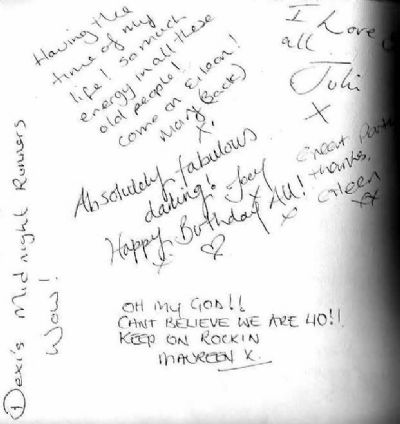 Having the
time of my
life! so much
energy in all these
old people!
come on Eileen!
Mary (Back)
X.
I Love
all
Juli
X
Absolutely fabulous
darling! Joey
X
Happy Birthday All!
X. ♡ X
Great Party
thanks,
Eileen
XX
Dexi's Midnight Runners
Wow!
OH MY GOD!!
CANT BELIEVE WE ARE 40!!
KEEP ON ROCKIN
MAUREEN X.